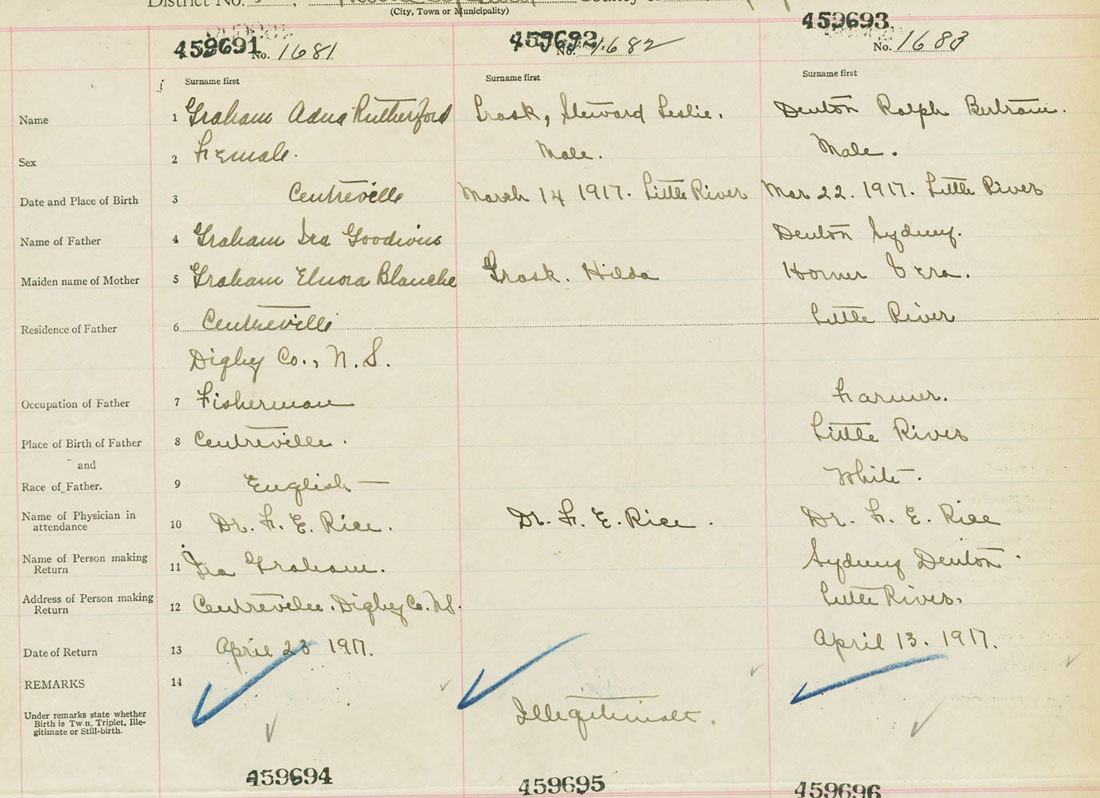 District No.
(City, Town or Municipality)
459691 No. 1681
459692 No. 1682
459693 No. 1683
Surname first Surname first Surname first
Name 1 Graham Adna Rutherford Trask, Steward Leslie. Denton Ralph Bertram.
Sex 2 Female. Male. Male.
Date and Place of Birth 3 Centreville March 14 1917. Little River Mar 22. 1917. Little River
Name of Father 4 Graham Ira Goodwin Denton Sydney.
Maiden name of Mother 5 Graham Elnora Blanche Trask. Hilda Horner Vera.
Residence of Father 6 Centreville Little River
Digby Co., N.S.
Occupation of Father 7 Fisherman Farmer.
Place of Birth of Father 8 Centreville. Little River
and
Race of Father. 9 English — White.
Name of Physician in attendance 10 Dr. F. E. Rice. Dr. F. E. Rice. Dr. F. E. Rice
Name of Person making Return 11 Ira Graham. Sydney Denton.
Address of Person making Return 12 Centreville. Digby Co. N.S. Little River.
Date of Return 13 April 23 1917. April 13. 1917.
REMARKS 14
Under remarks state whether
Birth is Twin, Triplet, Ille-
gitimate or Still-birth.
Illegitimate.
459694 459695 459696